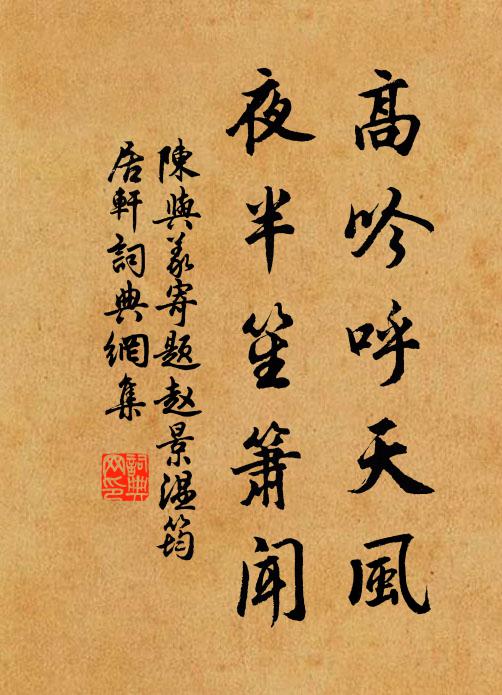 高吟呼天風
夜半笙簫聞
陳與義寄題趙景溫筠
居軒詞典網集
詞典網印